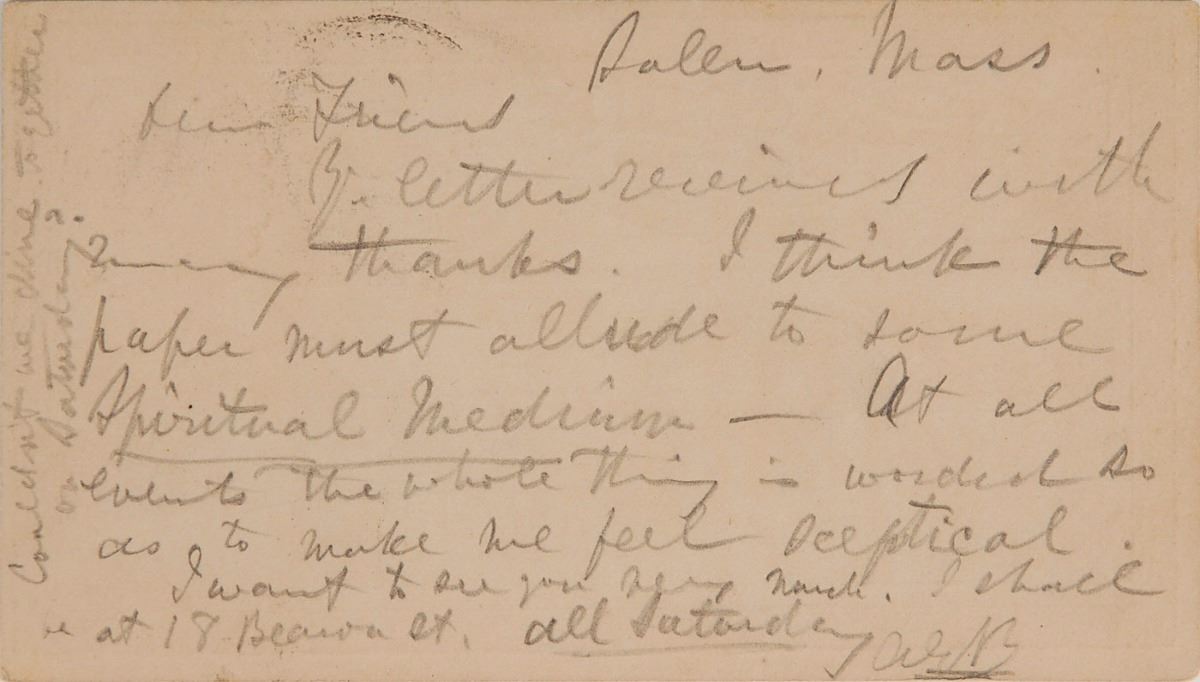 Salem, Mass.
Dear Friend
Yr. letter received with
many thanks. I think the
paper must allude to some
Spiritual Medium — At all
events the whole thing is worded so
as to make me feel sceptical.
I want to see you very much. I shall
be at 18 Beacon St. all Saturday
AGB
Couldn't we dine together
on Saturday?